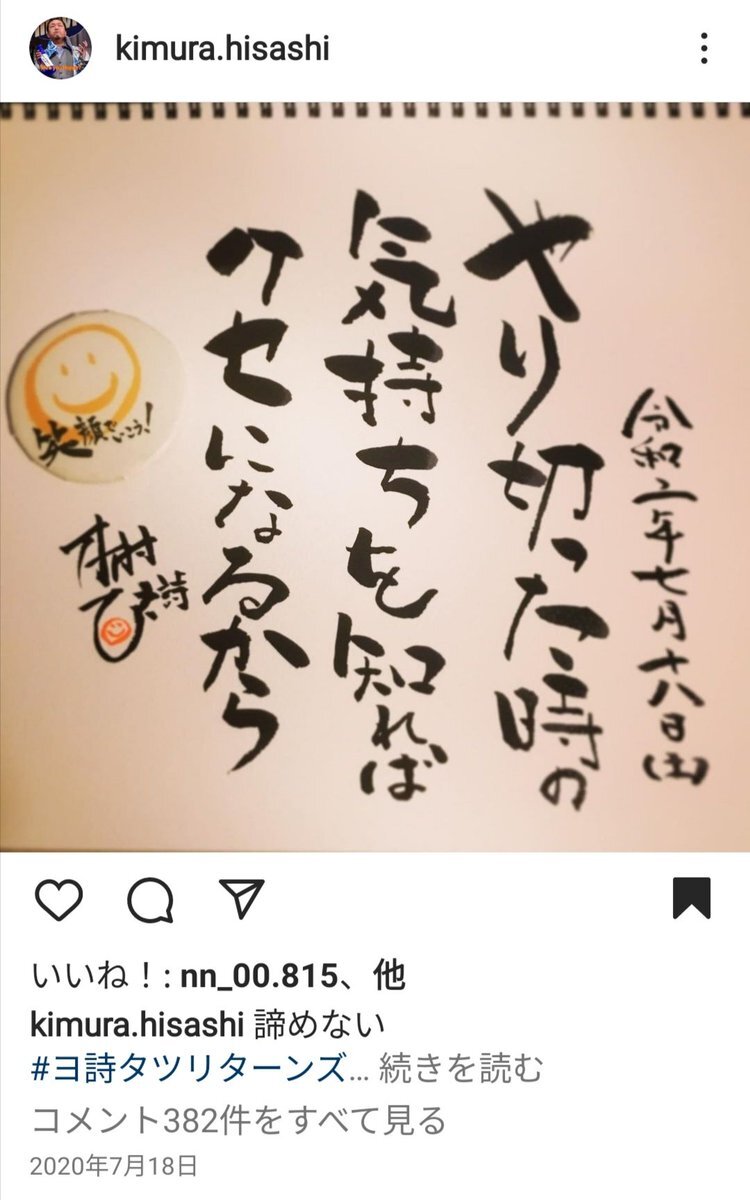 kimura.hisashi
令和二年七月十八日(土)
やり切った時の
気持ちを知れば
クセになるから
笑顔でいこう!
木村ひさ詩
いいね！: nn_00.815、他
kimura.hisashi 諦めない
#ヨ詩タツリターンズ... 続きを読む
コメント382件をすべて見る
2020年7月18日